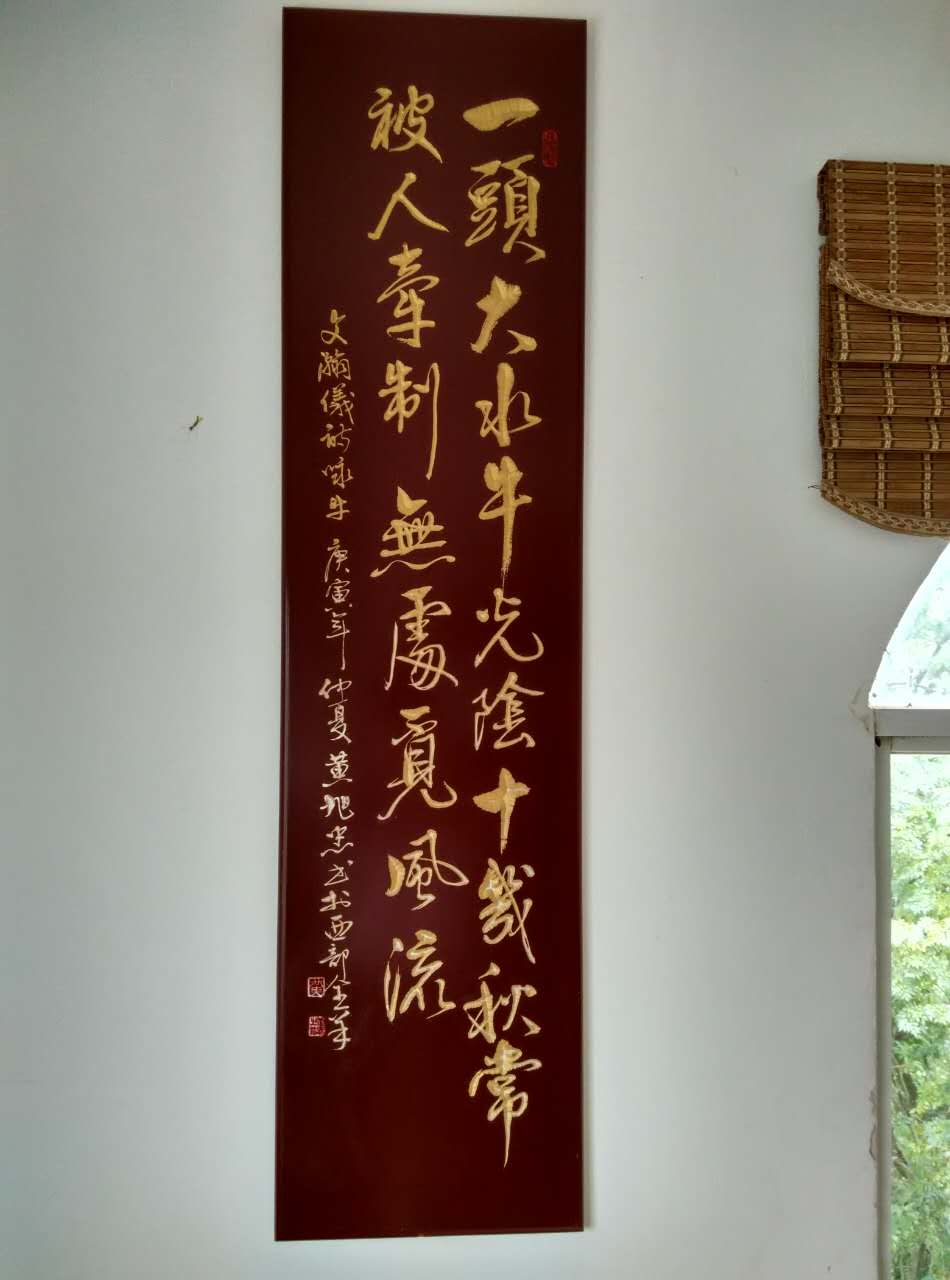 一頭大水牛光陰十幾秋常
被人牽制無處覓風流
文瀚儀詩咏牛 庚寅年仲夏黃旭忠書於西部全羊